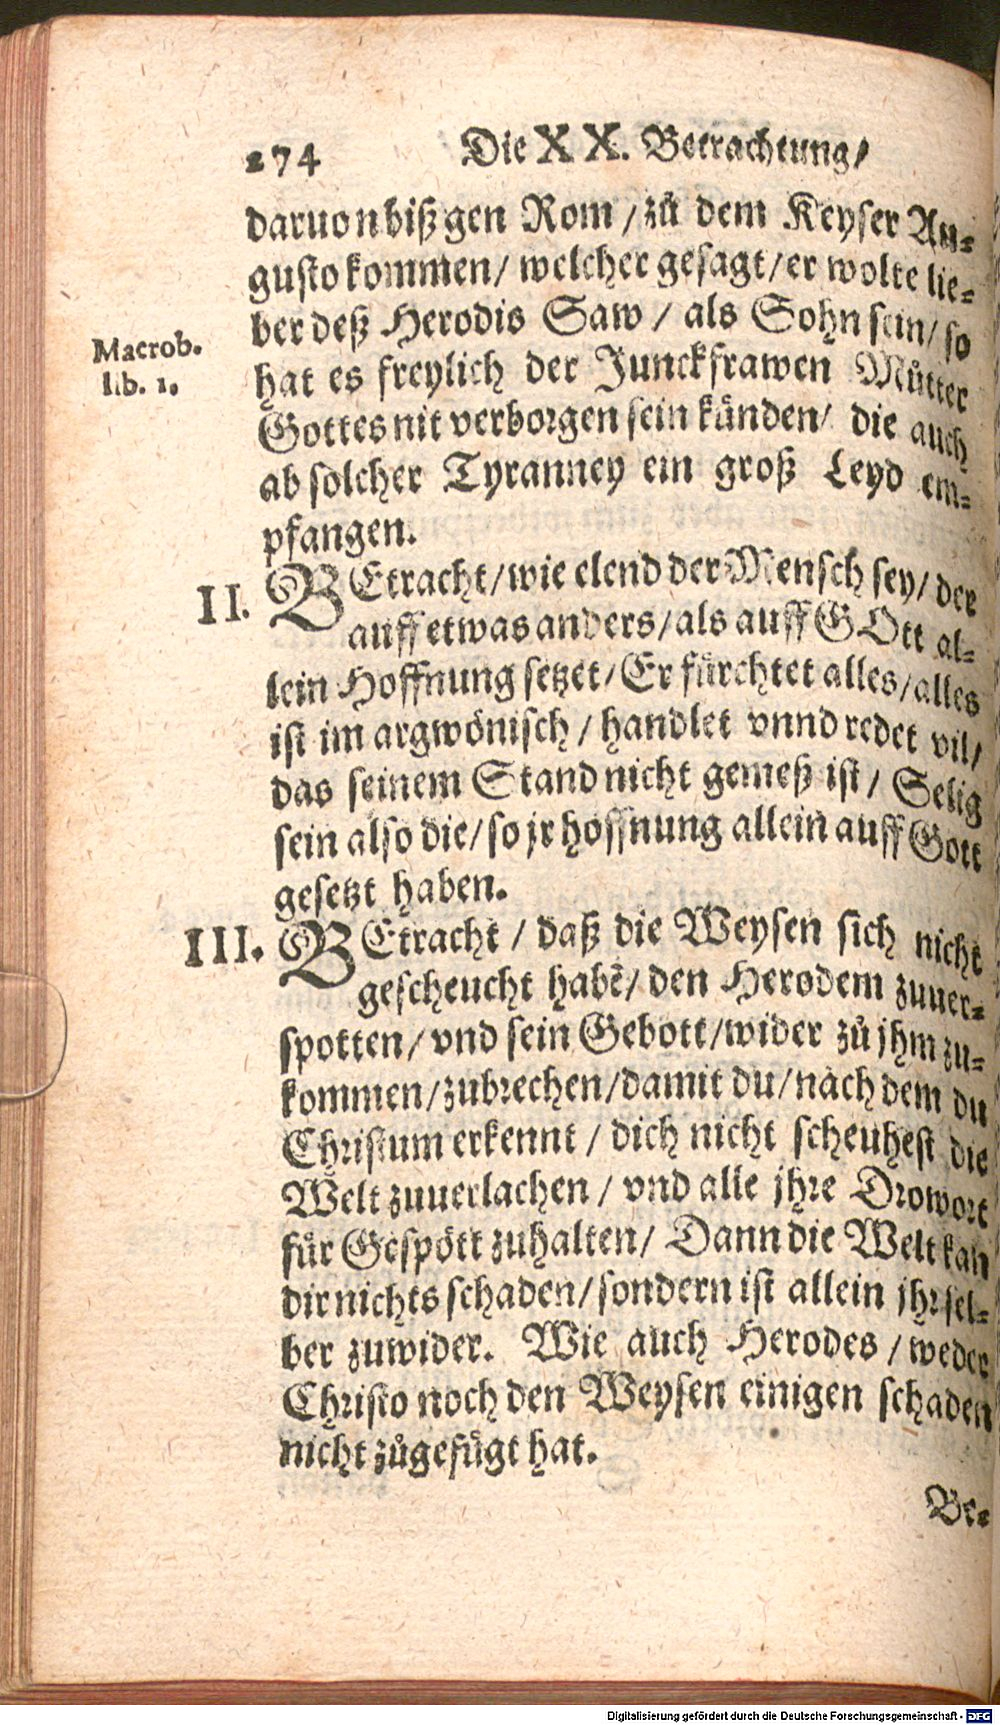 274 Die XX. Betrachtung/
daruon biß gen Rom / zů dem Keyser Au-
gusto kommen/ welcher gesagt/ er wolte lie-
ber deß Herodis Saw / als Sohn sein/ so
Macrob.
lib. 1.
hat es freylich der Junckfrawen Můtter
Gottes nit verborgen sein künden/ die auch
ab solcher Tyranney ein groß Leyd em-
pfangen.
II. BEtracht/ wie elend der Mensch sey/ der
auff etwas anders/ als auff GOtt al-
lein Hoffnung setzet/ Er fürchtet alles/ alles
ist im argwönisch / handlet vnnd redet vil/
das seinem Stand nicht gemeß ist/ Selig
sein also die/ so jr hoffnung allein auff Gott
gesetzt haben.
III. BEtracht / daß die Weysen sich nicht
gescheucht habẽ/ den Herodem zuuer-
spotten/ vnd sein Gebott/ wider zů jhm zu-
kommen/ zubrechen/ damit du/ nach dem du
Christum erkennt / dich nicht scheuhest die
Welt zuuerlachen / vnd alle jhre Drowort
für Gespött zuhalten/ Dann die Welt kan
dir nichts schaden/ sondern ist allein jhr sel-
ber zuwider. Wie auch Herodes / weder
Christo noch den Weysen einigen schaden
nicht zůgefügt hat.
Be-
Digitalisierung gefördert durch die Deutsche Forschungsgemeinschaft - DFG